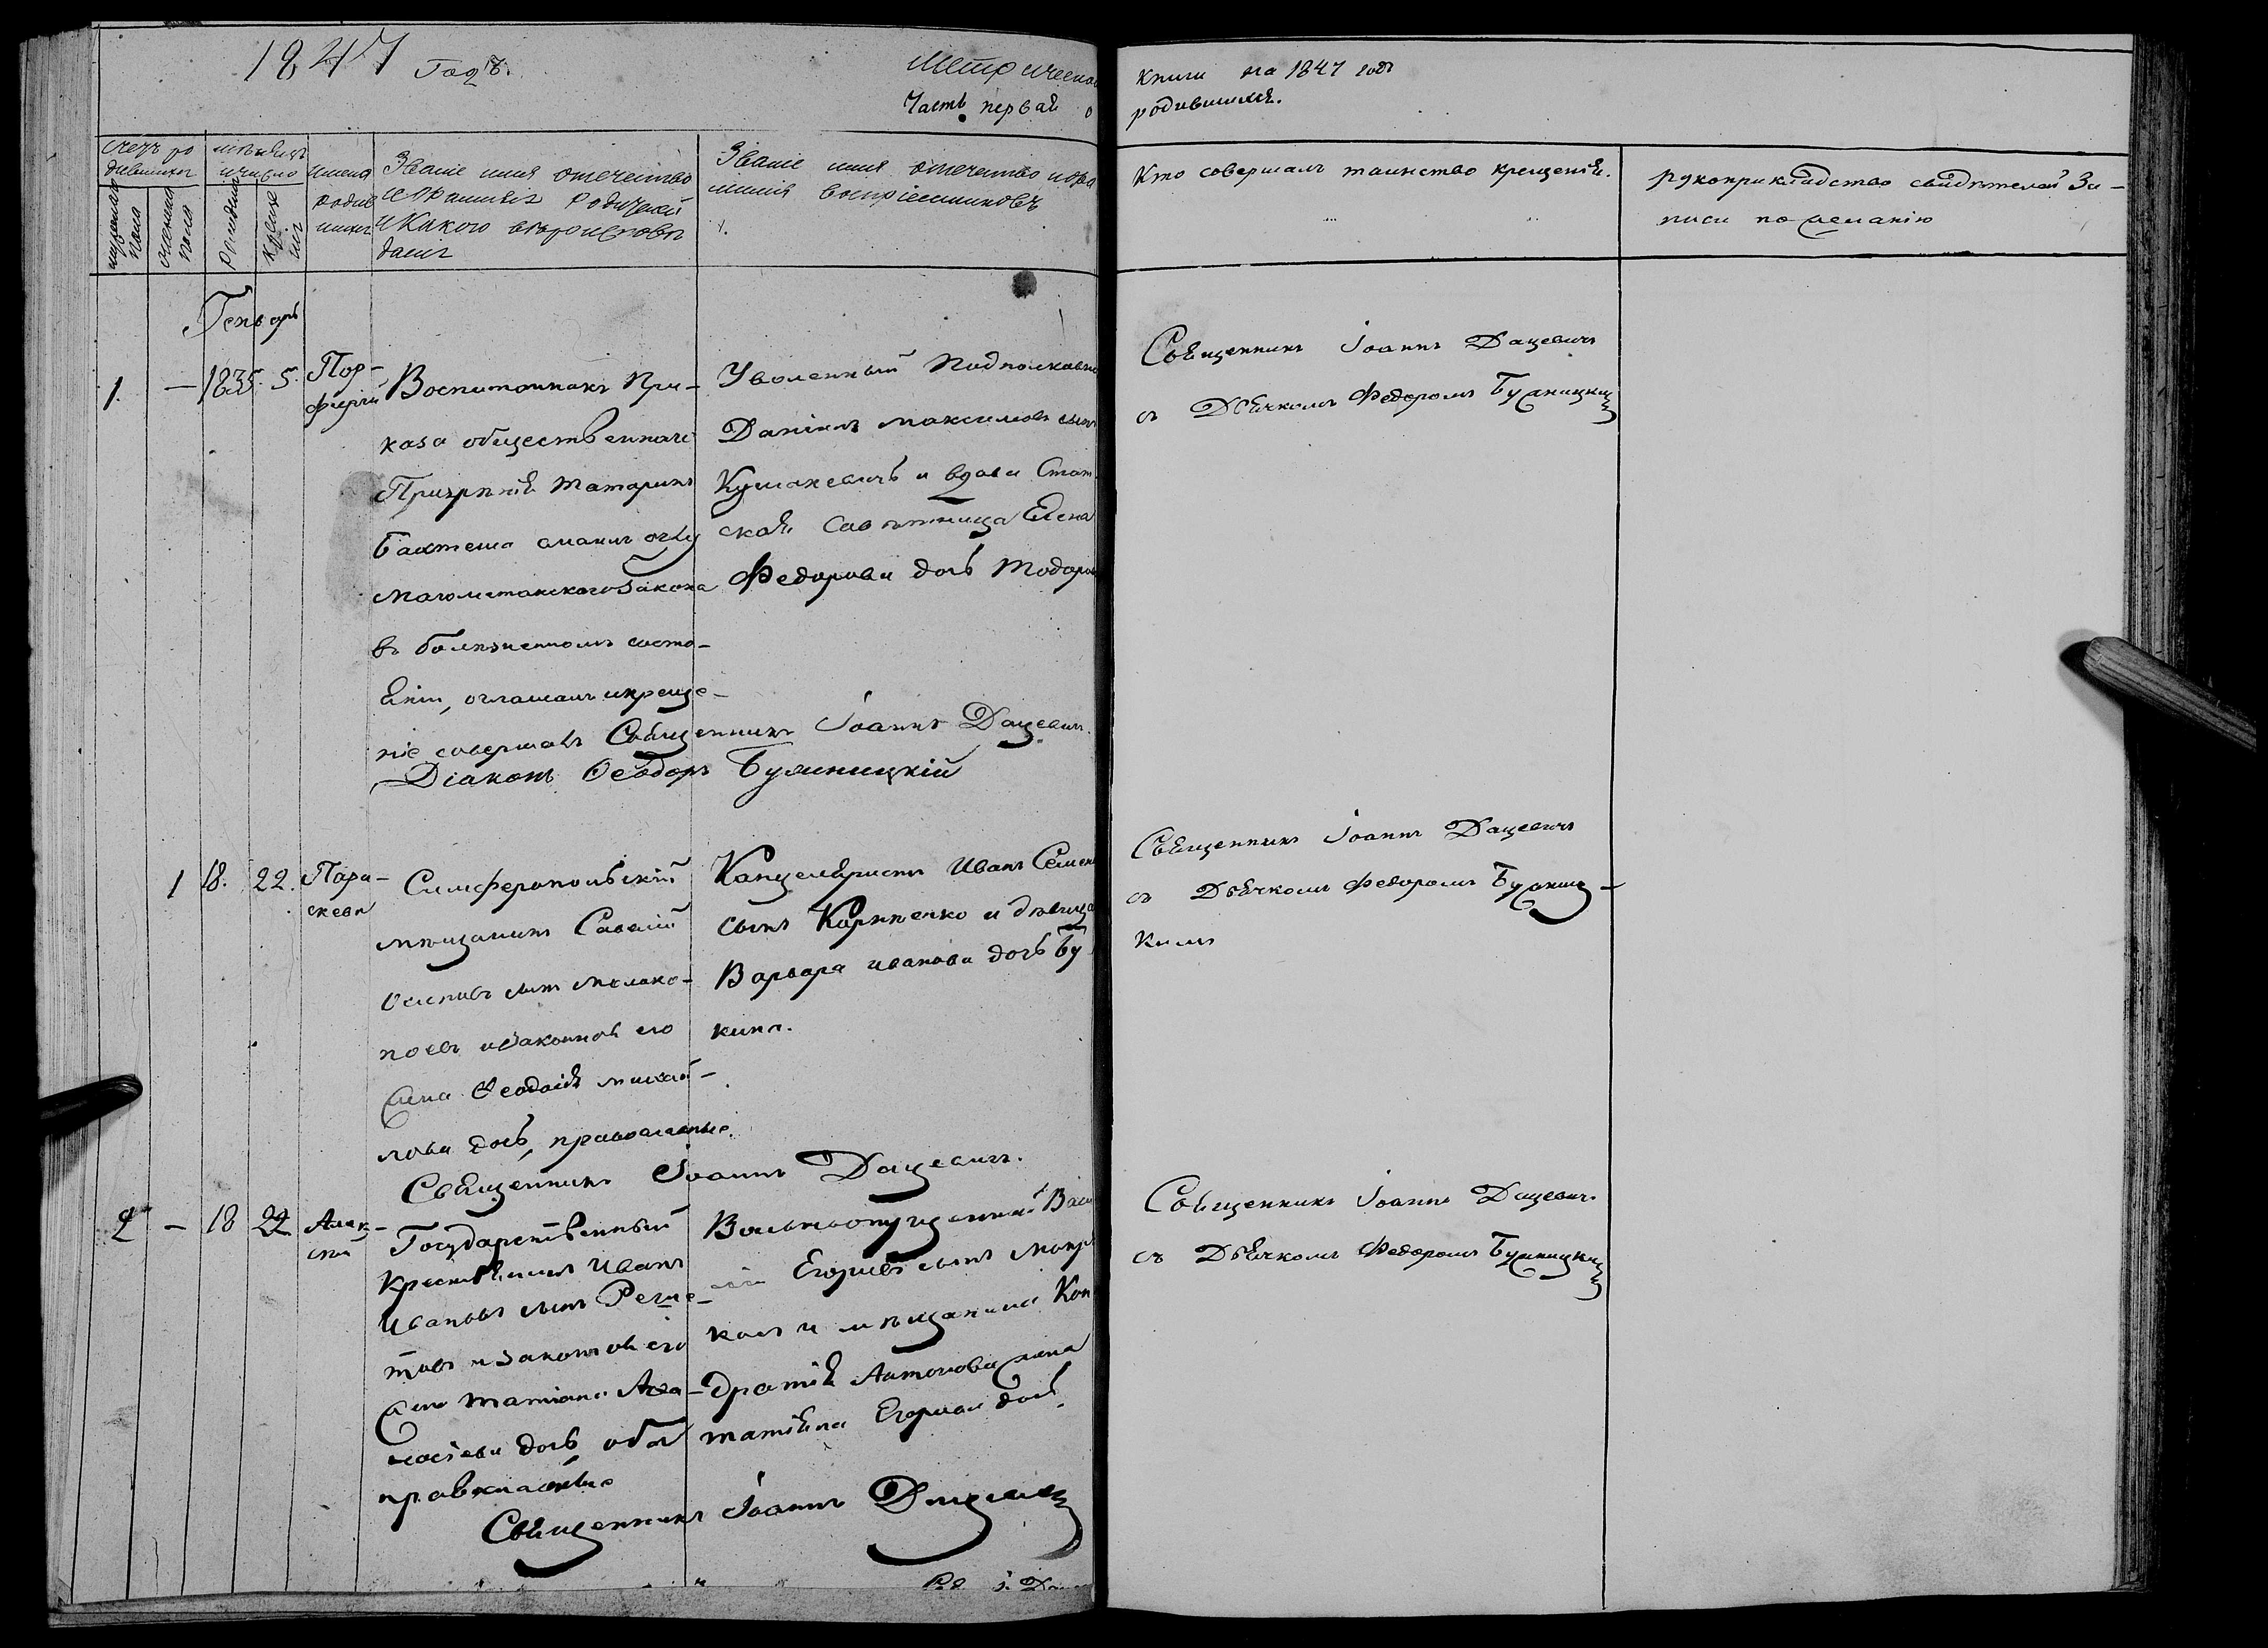 1847 Годъ.
Метрической
Часть первая о
книги на 1847 годъ
родившихся.
Счетъ ро
дившихся
мѣсяцъ
и число
имена
родив
шихся
мужеска
пола
женска
пола
Рожденія
Креще
нія
Званіе имя отечество
и фамилія Родителей
и Какого вѣроисповѣ
данія
Званіе имя отечество и фа
милія воспріемниковъ
Кто совершалъ таинство крещенія.
рукоприкладство свидѣтелей За-
писи по желанію
Генварь
1. — 1835. 5. Пор-
фирій
Воспитанникъ При-
каза общественнаго
Призрѣнія татаринъ
магометанского Закона
въ болѣзненномъ состо-
яніи, оглашалъ и креще-
ніе совершалъ Священникъ Іоаннъ Дацевичъ.
Діаконъ Ѳеодоръ Буяницкій
Уволенный Подполковн
Даніилъ Максимовъ сынъ
Кушакевичъ и вдова Стат
ская Совѣтница Елена
Федорова дочь Тодоров
Священникъ Іоаннъ Дацевичъ
съ Дьячкомъ Федоромъ Буяницким
1 18. 22. Пара-
скева
Симферопольскій
мѣщанинъ Савелій
Осиповъ сынъ
и законная его
жена Ѳеодосія Михай-
лова дочь, православные.
Священникъ Іоаннъ Дацевичъ.
Канцеляристъ Иванъ Семен
сынъ Корниенко и дѣвица
Варвара Иванова дочь Бу
кина.
Священникъ Іоаннъ Дацевичъ
съ Дьячкомъ Федоромъ Буяниц-
кимъ
2 — 18 22 Алек-
сѣй
Государственный
Крестьянинъ Иванъ
Ивановъ сынъ Реше-
товъ и законная его
жена Татіана Афа-
насіева дочь, оба
православные
Священникъ Іоаннъ Дацевичъ
Вольноотпущенный Васи
лій Егоровъ сынъ
и мѣщанина Кон
дратія Антонова жена
Татіана Егорова дочь.
Священникъ Іоаннъ Дацевичъ
съ Дьячкомъ Федоромъ Буяницким